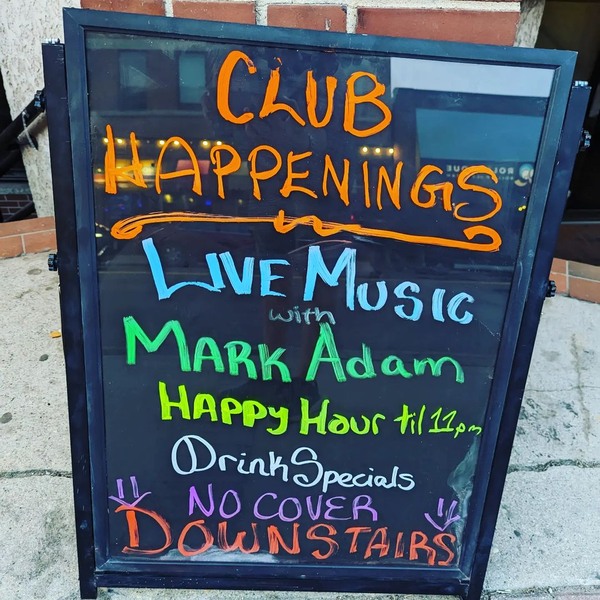 CLUB
HAPPENINGS
LIVE MUSIC
with
MARK Adam
HAPPY Hour til 11pm
Drink Specials
NO COVER
DOWNSTAIRS